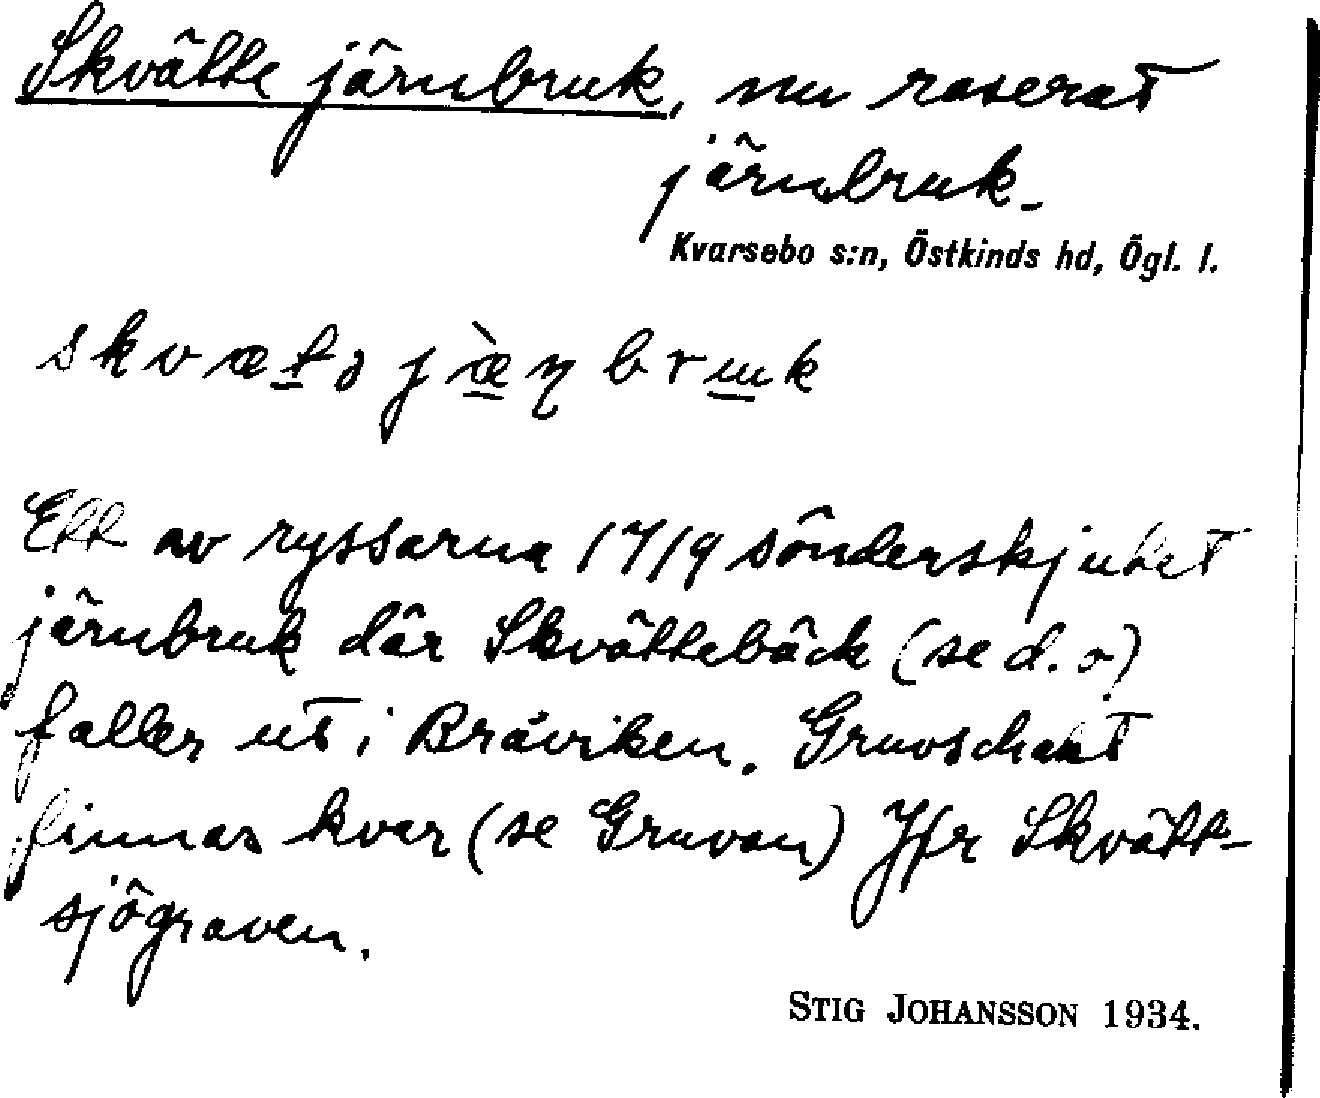 Skvätte järnbruk, nu raserat
järnbruk.
Kvarsebo s:n, Östkinds hd, Ögl. l.
skvætə jæ̀ɳbruk
Ett av ryssarna 1719 sönderskjutet
järnbruk där Skvättebäck (se d. o)
faller ut i Bråviken. Gruvschakt
finnas kvar (se Gruvan) Jfr Skvätt-
sjögraven.
STIG JOHANSSON 1934.